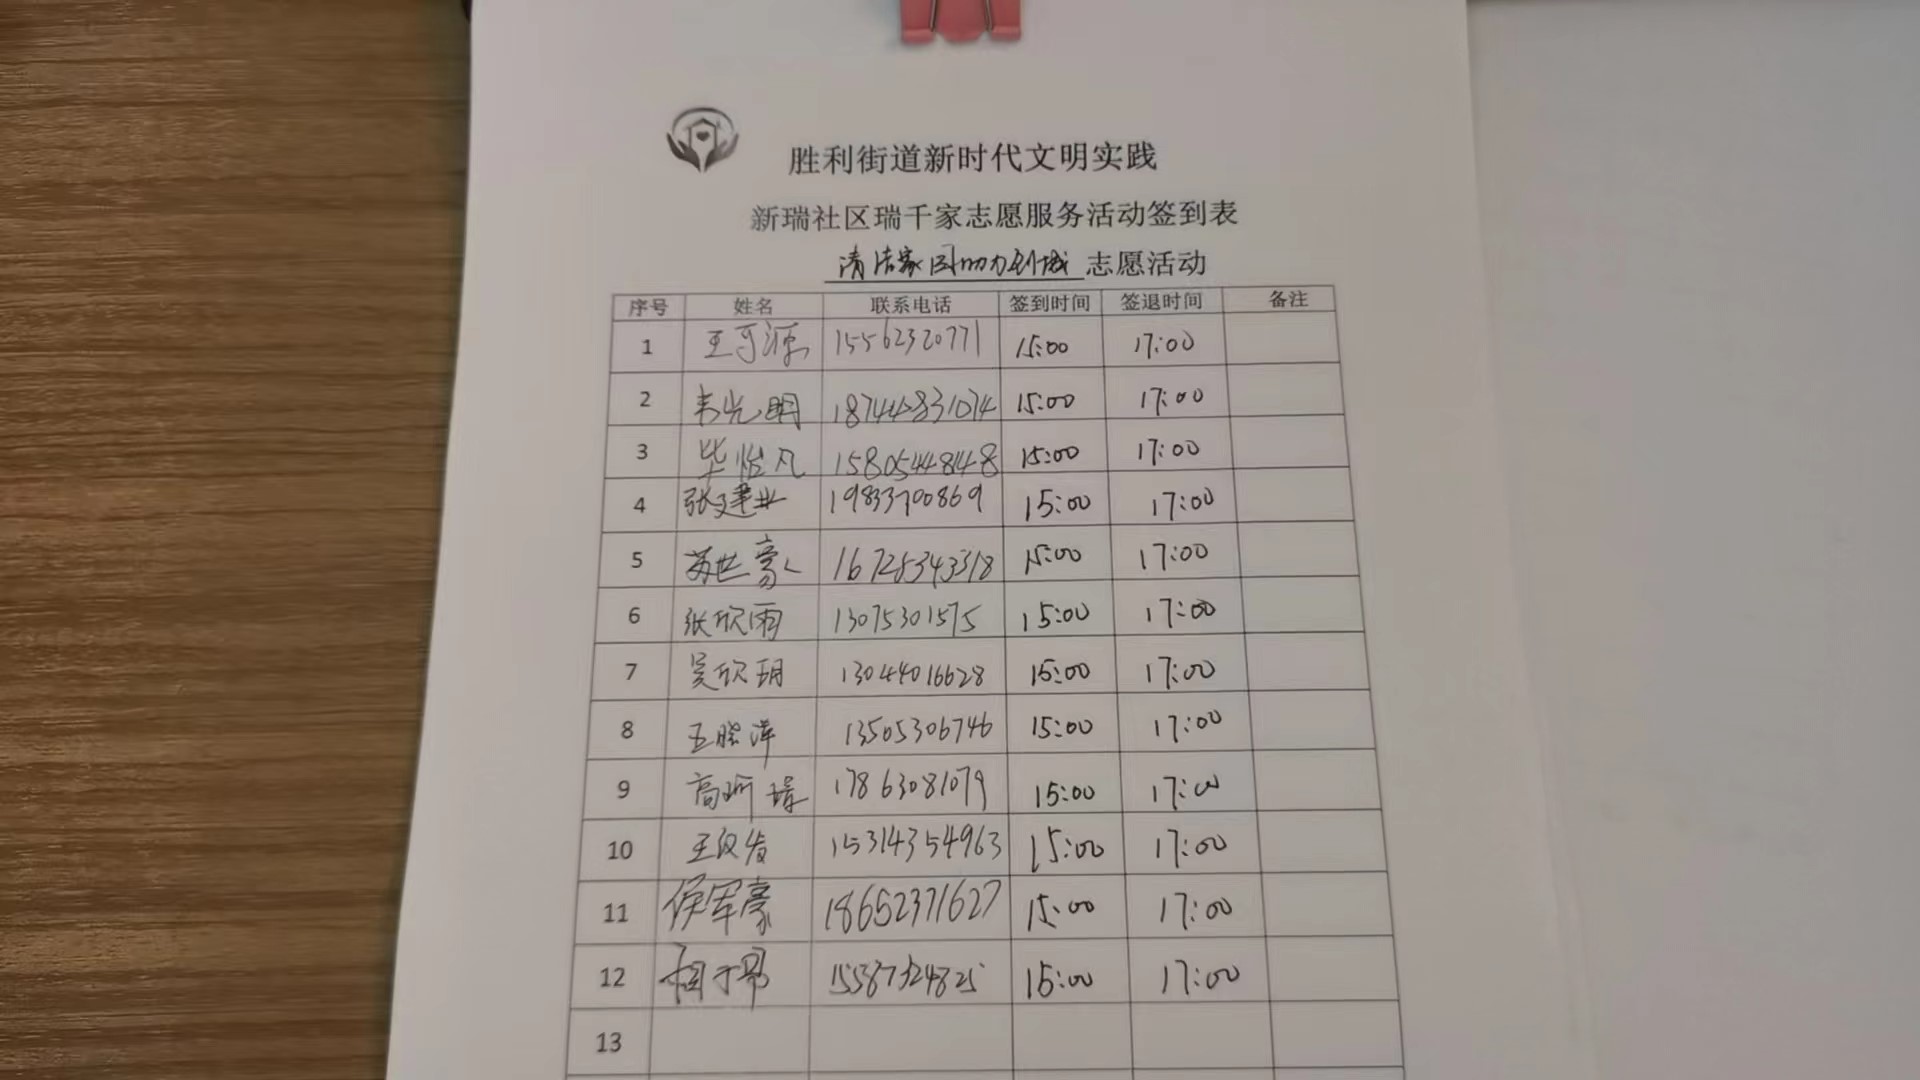 胜利街道新时代文明实践
新瑞社区瑞千家志愿服务活动签到表
清洁家园助力创城 志愿活动
序号 姓名 联系电话 签到时间 签退时间 备注
1 王可源 15562320771 15:00 17:00
2 韦光明 18744831074 15:00 17:00
3 毕怡凡 15805448148 15:00 17:00
4 张建业 19833700869 15:00 17:00
5 苏世豪 16725343318 15:00 17:00
6 张欣雨 13075301575 15:00 17:00
7 吴欣玥 13044016628 15:00 17:00
8 王晓萍 13505306746 15:00 17:00
9 高珂 17863081079 15:00 17:00
10 王 15314354963 15:00 17:00
11 侯军豪 18652371627 15:00 17:00
12 15:00 17:00
13